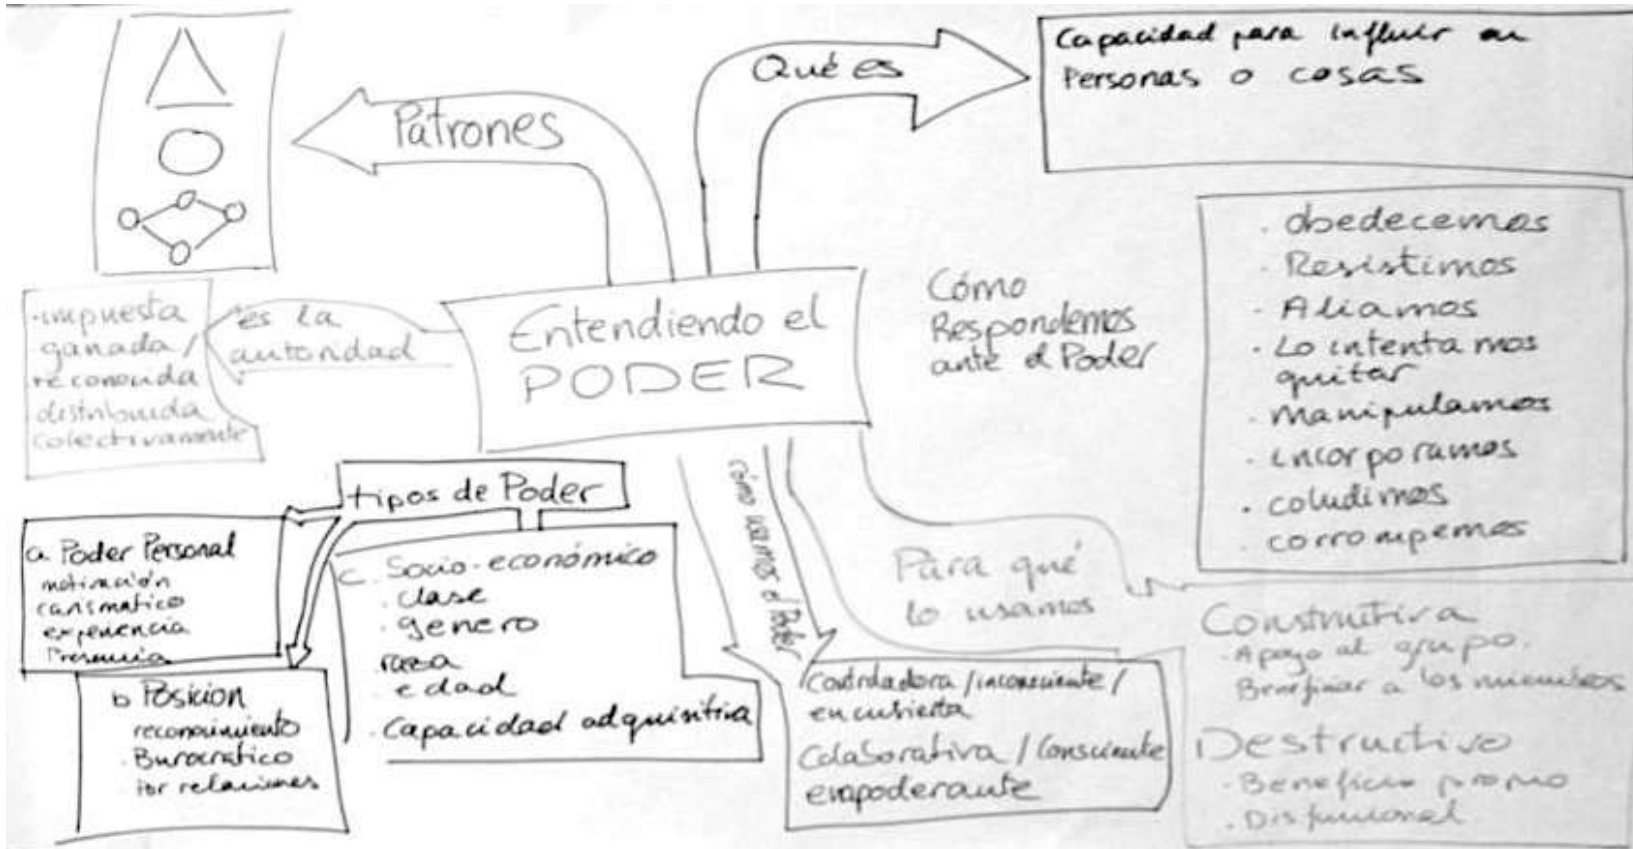 Patrones
Qué es
Capacidad para influir en
Personas o cosas
Entendiendo el
PODER
es la
autoridad
impuesta
ganada/
reconocida
distribuida
colectivamente
Cómo
Respondemos
ante el Poder
. obedecemos
. Resistimos
. Aliamos
. Lo intentamos
quitar
. Manipulamos
. incorporamos
. coludimos
. corrompemos
tipos de Poder
a. Poder Personal
motivación
carismatico
experiencia
Presencia
b Posicion
reconocimiento
. Burocratico
por relaciones
c. Socio-económico
. clase
. genero
raza
. edad
. Capacidad adquisitiva
cómo usamos el Poder
Controladora/inconsciente/
encubierta
Colaborativa/Consciente
empoderante
Para qué
lo usamos
Constructiva
. Apoyo al grupo.
Beneficiar a los miembros
Destructivo
. Beneficio propio
. Disfuncional